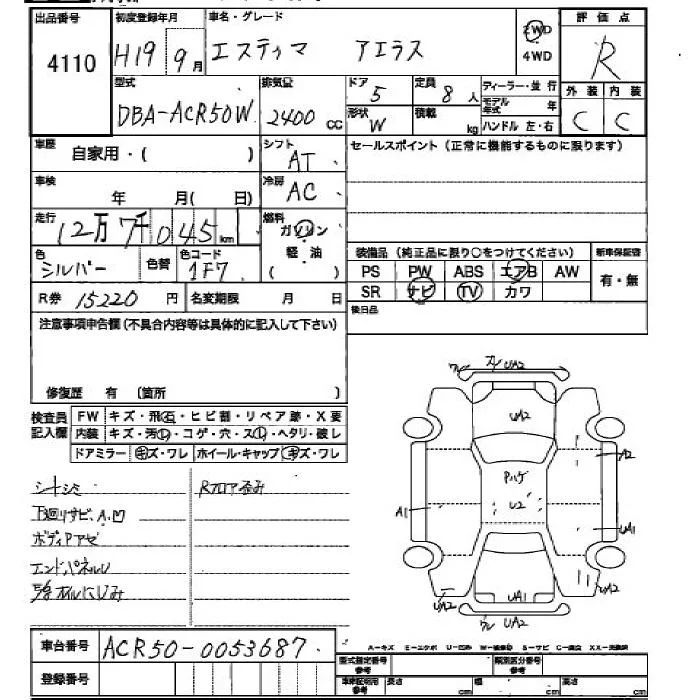 出品番号 初度登録年月 車名・グレード 評価点
4110 H19 9月 エスティマ アエラス 2WD R
4WD
型式 排気量 ドア 定員 ディーラー・並行 外装 内装
DBA-ACR50W 2400cc 5 8人 モデル年式 年 C C
形状 積載
W kg ハンドル 左・右
車歴 シフト セールスポイント(正常に機能するものに限ります)
自家用・( ) AT
車検 冷房
年 月( 日) AC
走行 燃料
12万7千045km ガソリン
軽油
( )
色 色替 色コード 装備品(純正品に限り○をつけてください) 新車保証書
シルバー 1F7 PS PW ABS エアB AW 有・無
R券 15220円 名変期限 月 日 SR ナビ TV カワ
後日品
注意事項申告欄(不具合内容等は具体的に記入して下さい)
修復歴 有 〔箇所 〕
検査員記入欄 FW キズ・飛石・ヒビ割・リペア跡・X要
内装 キズ・汚レ・コゲ・穴・スレ・ヘタリ・破レ
ドアミラー キズ・ワレ ホイール・キャップ キズ・ワレ
シートシミ Rフロア歪み
下廻りサビ、A、凹
ボディPアセ
エンドパネルU
ワレ ガレ UA2
UA2
Pハゲ
U2
A2
A1
UA1
UA2
UA2
UA1
ワレ UA2
A-キズ E-エクボ U-凹み W-補修跡 S-サビ C-腐食 XX-交換済
車台番号 ACR50-0053687
登録番号
型式指定番号 参考 類別区分番号 参考
車庫証明用 参考 長さ cm 幅 cm 高さ cm